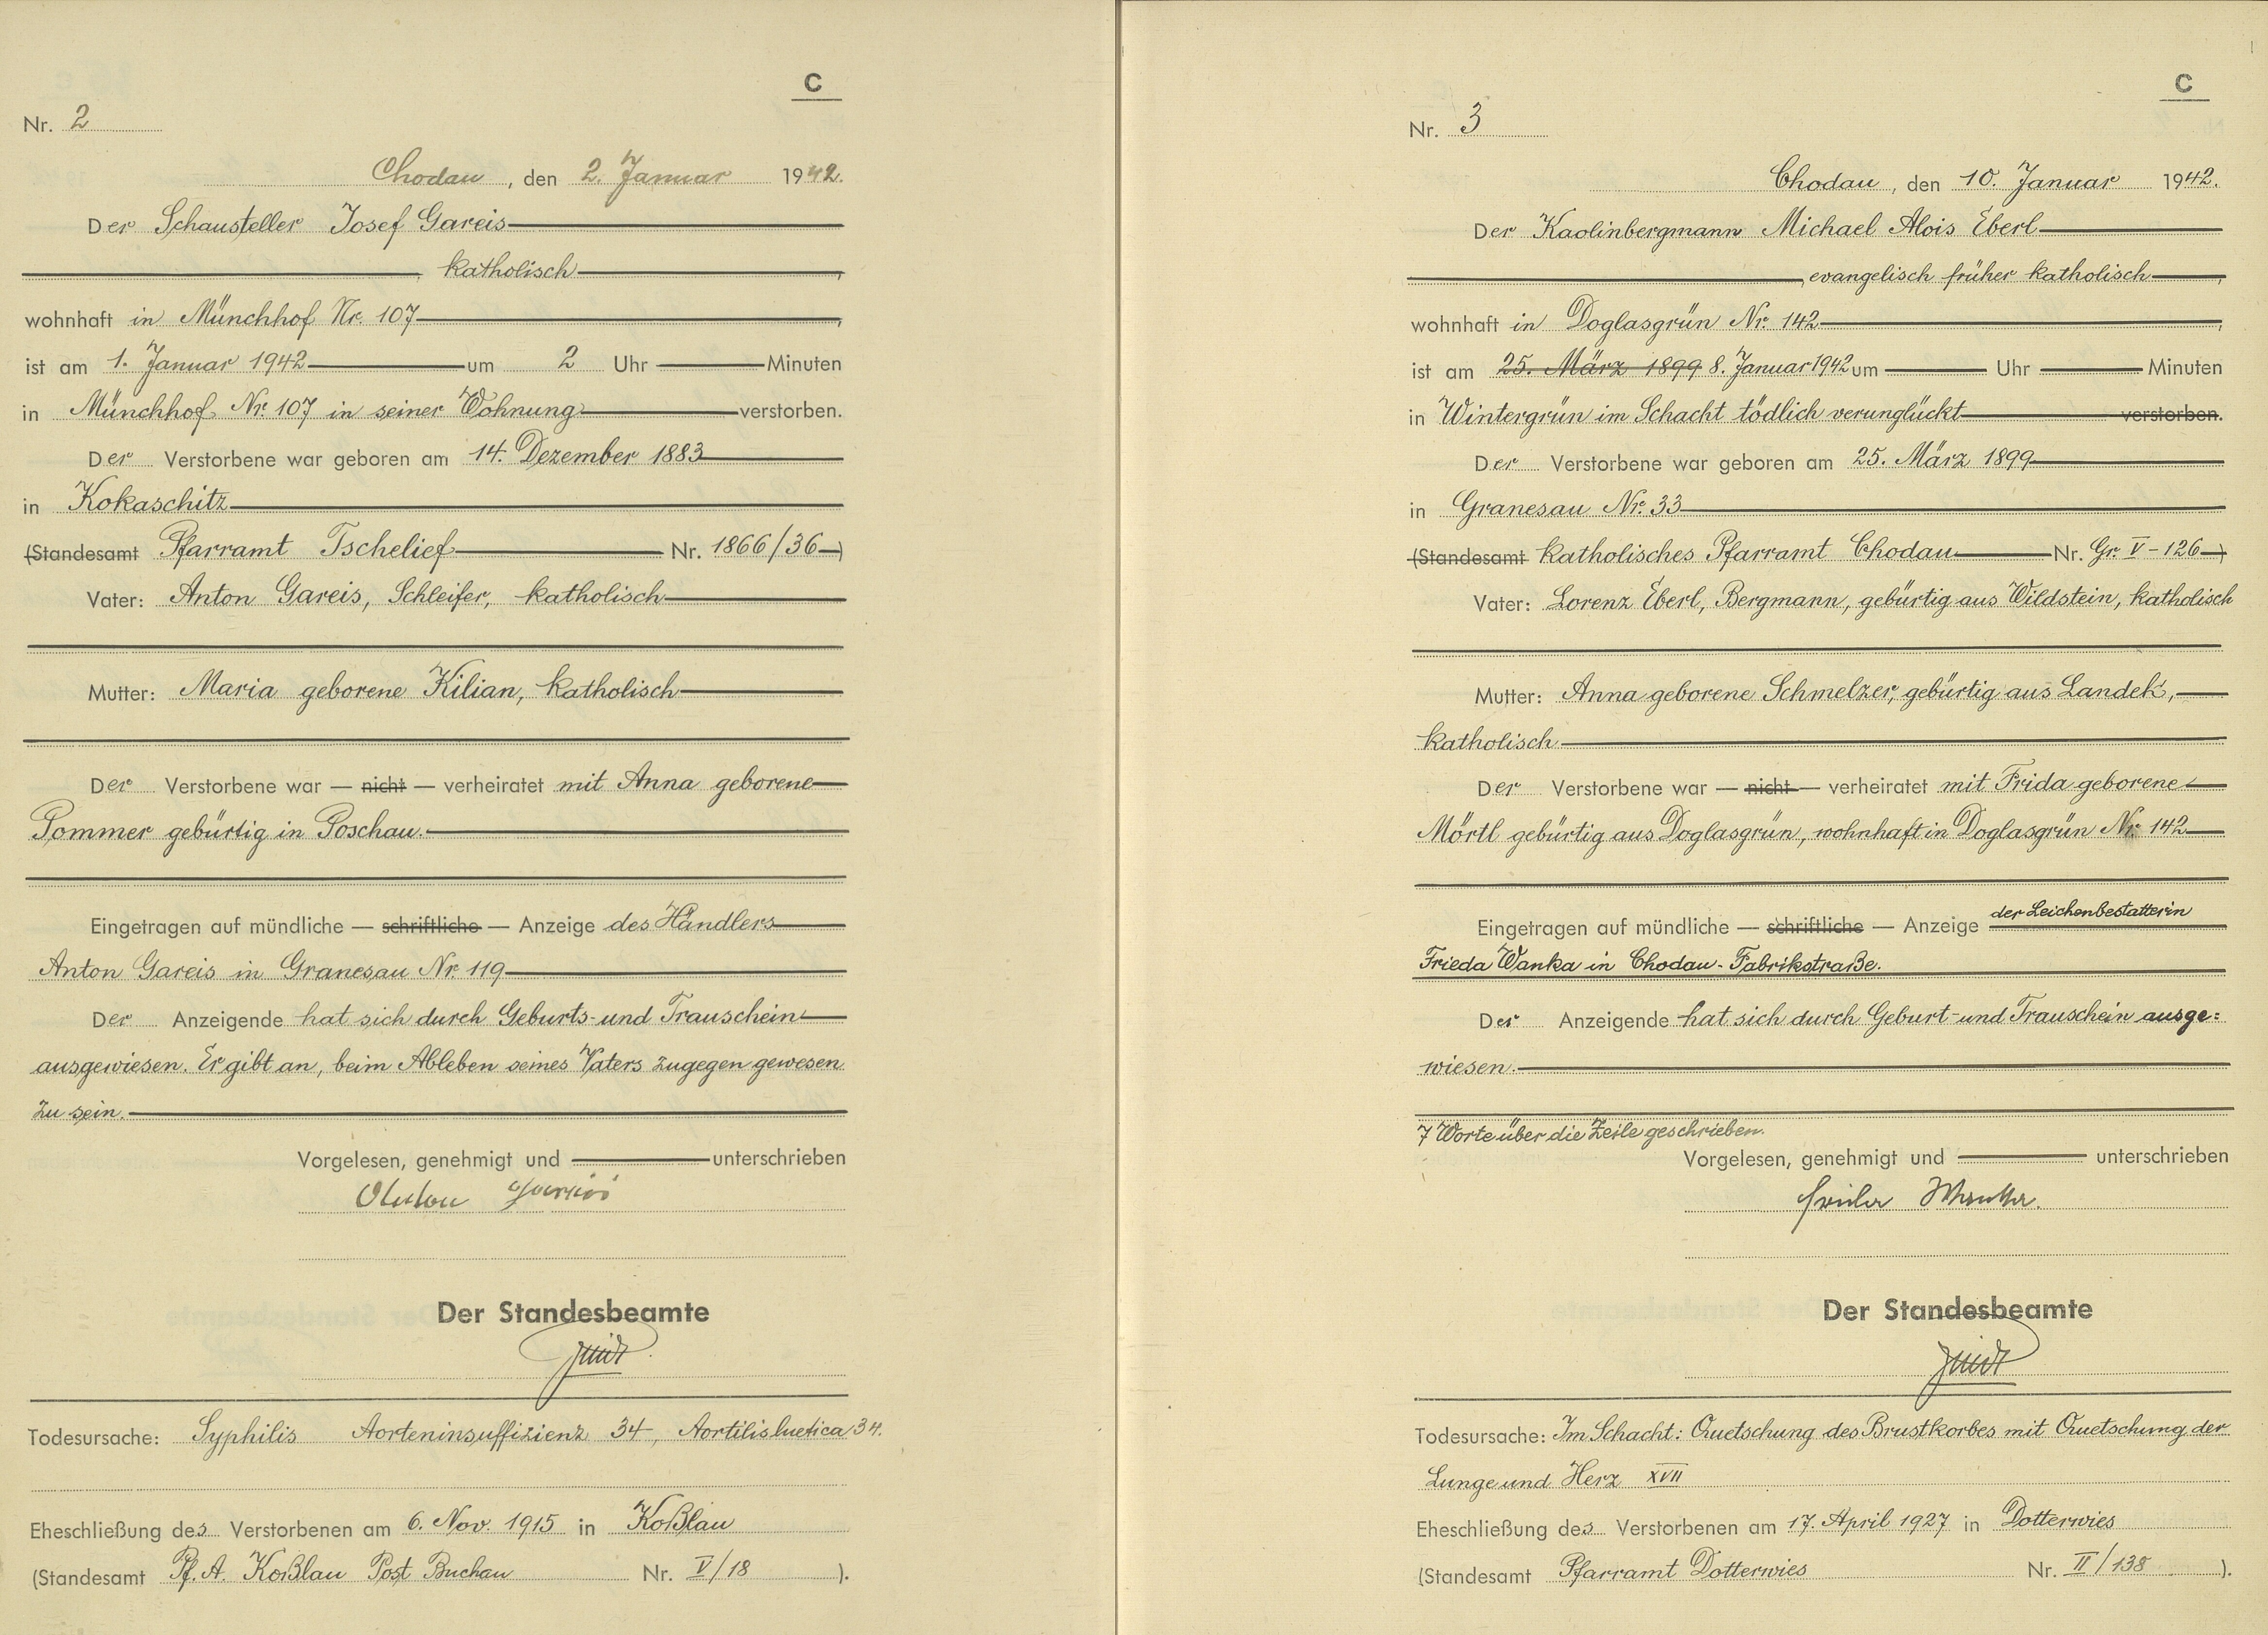 C
Nr. 2
Chodau, den 2. Januar 1942.
Der Schausteller Josef Gareis
katholisch,
wohnhaft in Münchhof Nr. 107,
ist am 1. Januar 1942 um 2 Uhr Minuten
in Münchhof Nr. 107 in seiner Wohnung verstorben.
Der Verstorbene war geboren am 14. Dezember 1883
in Kokaschitz
(Standesamt Pfarramt Tschelief Nr. 1866/36)
Vater: Anton Gareis, Schleifer, katholisch
Mutter: Maria geborene Kilian, katholisch
Der Verstorbene war — nicht — verheiratet mit Anna geborene
Pommer gebürtig in Poschau.
Eingetragen auf mündliche — schriftliche — Anzeige des Händlers
Anton Gareis in Granesau Nr 119
Der Anzeigende hat sich durch Geburts- und Trauschein
ausgewiesen. Er gibt an, beim Ableben seines Vaters zugegen gewesen
zu sein.
Vorgelesen, genehmigt und unterschrieben
Anton Gareis
Der Standesbeamte
Todesursache: Syphilis Aorteninsuffizienz 34, Aortilisluetica 34.
Eheschließung des Verstorbenen am 6. Nov. 1915 in Koßlau
(Standesamt Pf. A. Koßlau Post Buchau Nr. V/18).
C
Nr. 3
Chodau, den 10. Januar 1942.
Der Kaolinbergmann Michael Alois Eberl
, evangelisch früher katholisch,
wohnhaft in Doglasgrün Nr. 142,
ist am 25. März 1899 8. Januar 1942 um Uhr Minuten
in Wintergrün im Schacht tödlich verunglückt verstorben.
Der Verstorbene war geboren am 25. März 1899
in Granesau Nr. 33
(Standesamt katholisches Pfarramt Chodau Nr. Gr. V-126)
Vater: Lorenz Eberl, Bergmann, gebürtig aus Wildstein, katholisch
Mutter: Anna geborene Schmelzer, gebürtig aus Landek,
katholisch
Der Verstorbene war — nicht — verheiratet mit Frida geborene
Mörtl gebürtig aus Doglasgrün, wohnhaft in Doglasgrün Nr. 142
Eingetragen auf mündliche — schriftliche — Anzeige der Leichenbestatterin
Frieda Wanka in Chodau-Fabrikstraße.
Der Anzeigende hat sich durch Geburt- und Trauschein ausge:
wiesen.
7 Worte über die Zeile geschrieben.
Vorgelesen, genehmigt und unterschrieben
Frieda Wanka.
Der Standesbeamte
Todesursache: Im Schacht: Quetschung des Brustkorbes mit Quetschung der
Lunge und Herz XVII
Eheschließung des Verstorbenen am 17. April 1927 in Dotterwies
(Standesamt Pfarramt Dotterwies Nr. II/138).